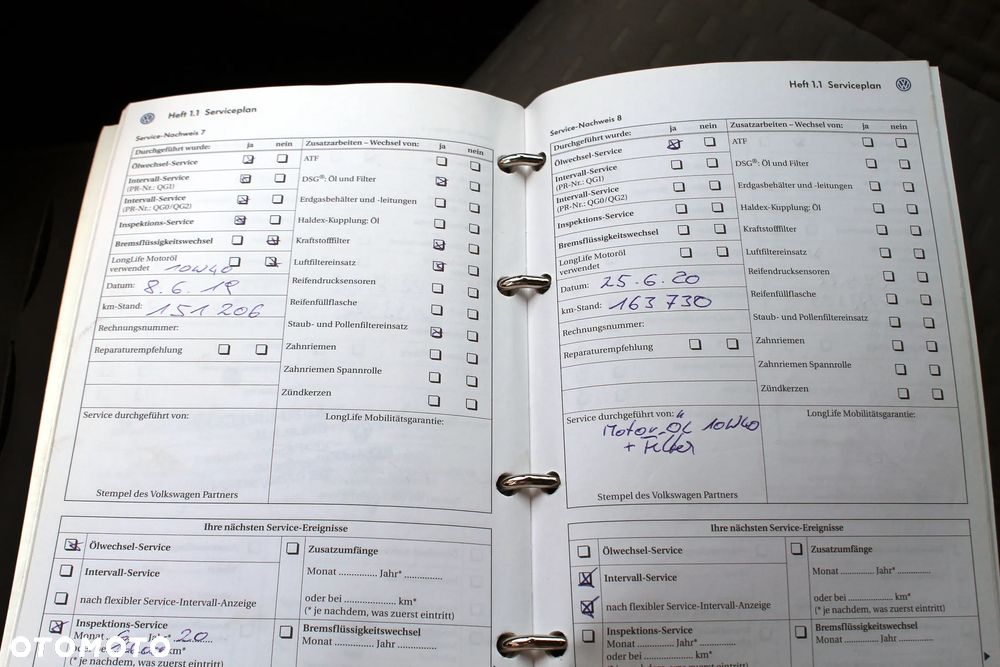 Heft 1.1 Serviceplan
Service-Nachweis 7
Durchgeführt wurde: ja nein
Ölwechsel-Service
Intervall-Service
(PR-Nr.: QG1)
Intervall-Service
(PR-Nr.: QG0/QG2)
Inspektions-Service
Bremsflüssigkeitswechsel
LongLife Motoröl
verwendet 10W40
Datum: 8.6.19
km-Stand: 151 206
Rechnungsnummer:
Reparaturempfehlung
Zusatzarbeiten – Wechsel von: ja nein
ATF
DSG®: Öl und Filter
Erdgasbehälter und -leitungen
Haldex-Kupplung: Öl
Kraftstofffilter
Luftfiltereinsatz
Reifendrucksensoren
Reifenfüllflasche
Staub- und Pollenfiltereinsatz
Zahnriemen
Zahnriemen Spannrolle
Zündkerzen
Service durchgeführt von:
Stempel des Volkswagen Partners
LongLife Mobilitätsgarantie:
Ihre nächsten Service-Ereignisse
Ölwechsel-Service
Intervall-Service
nach flexibler Service-Intervall-Anzeige
Inspektions-Service
Monat 6 Jahr* 20
oder bei km*
(* je nachdem, was zuerst eintritt)
Zusatzumfänge
Monat .............. Jahr* ..............
oder bei .................... km*
(* je nachdem, was zuerst eintritt)
Bremsflüssigkeitswechsel
Monat .............. Jahr* ..............
Heft 1.1 Serviceplan
Service-Nachweis 8
Durchgeführt wurde: ja nein
Ölwechsel-Service
Intervall-Service
(PR-Nr.: QG1)
Intervall-Service
(PR-Nr.: QG0/QG2)
Inspektions-Service
Bremsflüssigkeitswechsel
LongLife Motoröl
verwendet
Datum: 25.6.20
km-Stand: 163 730
Rechnungsnummer:
Reparaturempfehlung
Zusatzarbeiten – Wechsel von: ja nein
ATF
DSG®: Öl und Filter
Erdgasbehälter und -leitungen
Haldex-Kupplung: Öl
Kraftstofffilter
Luftfiltereinsatz
Reifendrucksensoren
Reifenfüllflasche
Staub- und Pollenfiltereinsatz
Zahnriemen
Zahnriemen Spannrolle
Zündkerzen
Service durchgeführt von:
Motor Öl 10W40
+ Filter
Stempel des Volkswagen Partners
LongLife Mobilitätsgarantie:
Ihre nächsten Service-Ereignisse
Ölwechsel-Service
Intervall-Service
nach flexibler Service-Intervall-Anzeige
Inspektions-Service
Monat .............. Jahr* ..............
oder bei .................... km*
(* je nachdem, was zuerst eintritt)
Zusatzumfänge
Monat .............. Jahr* ..............
oder bei .................... km*
(* je nachdem, was zuerst eintritt)
Bremsflüssigkeitswechsel
Monat .............. Jahr* ..............
OTOMOTO